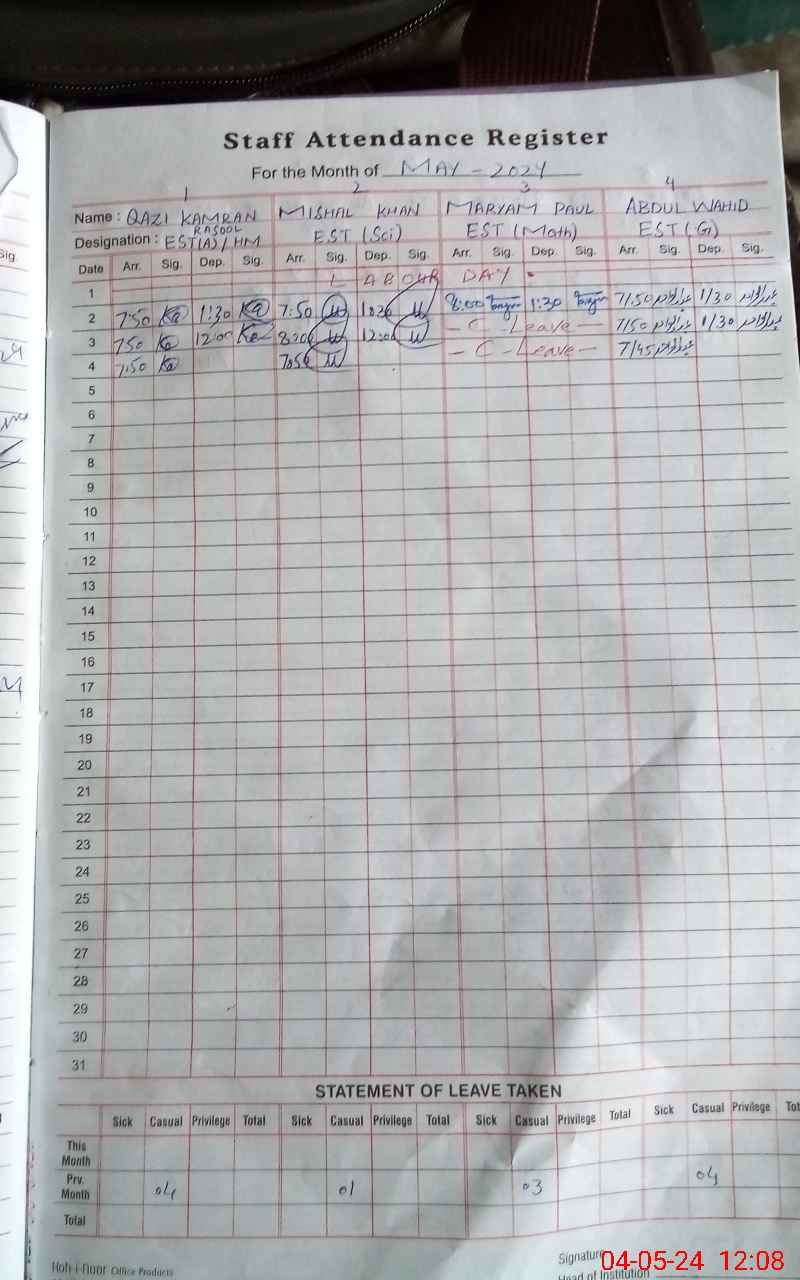 Staff Attendance Register
For the Month of MAY - 2024
1 2 3 4
Name : QAZI KAMRAN RASOOL MISHAL KHAN MARYAM PAUL ABDUL WAHID
Designation : EST(A)/HM EST (Sci) EST (Math) EST (G)
Date Arr. Sig. Dep. Sig. Arr. Sig. Dep. Sig. Arr. Sig. Dep. Sig. Arr. Sig. Dep. Sig.
1 LABOUR DAY
2 7:50 1:30 7:50 8:00 1:30 7/50 1/30
3 750 12:00 - C - Leave - 7/50 1/30
4 7:50 - C - Leave - 7/45
5
6
7
8
9
10
11
12
13
14
15
16
17
18
19
20
21
22
23
24
25
26
27
28
29
30
31
STATEMENT OF LEAVE TAKEN
Sick Casual Privilege Total Sick Casual Privilege Total Sick Casual Privilege Total Sick Casual Privilege
This Month
Prv. Month 04 01 03 04
Total
Koh-i-Noor Office Products
Signature
Head of Institution
04-05-24 12:08